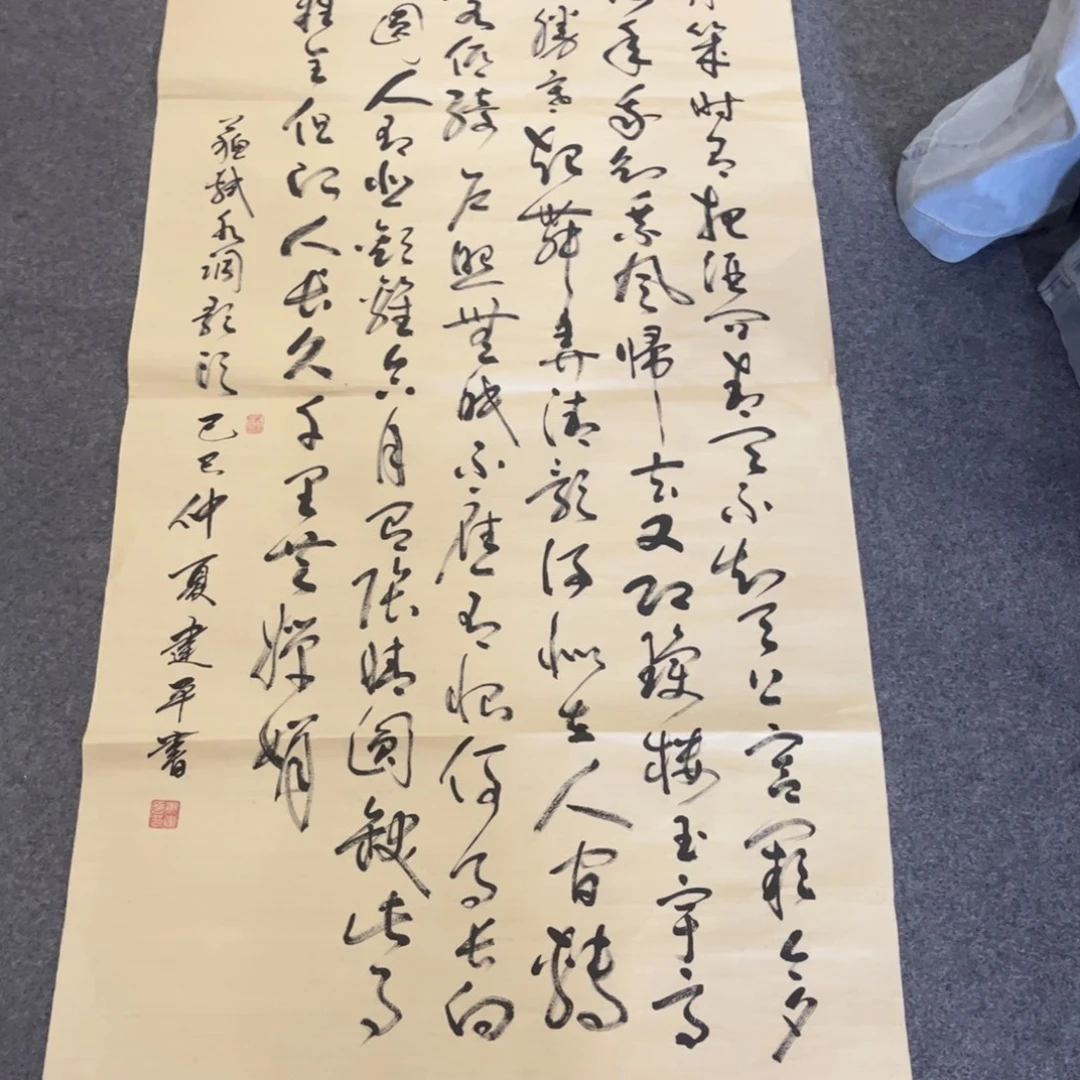 幾時有把酒問青天不知天上宮闕今夕
年我欲乘風歸去又恐瓊樓玉宇高
勝寒起舞弄清影何似在人間轉
低綺戶照無眠不應有恨何事長向
圓人有悲歡離合月有陰晴圓缺此事
難全但願人長久千里共嬋娟
蘇軾水調歌頭己巳仲夏建平書